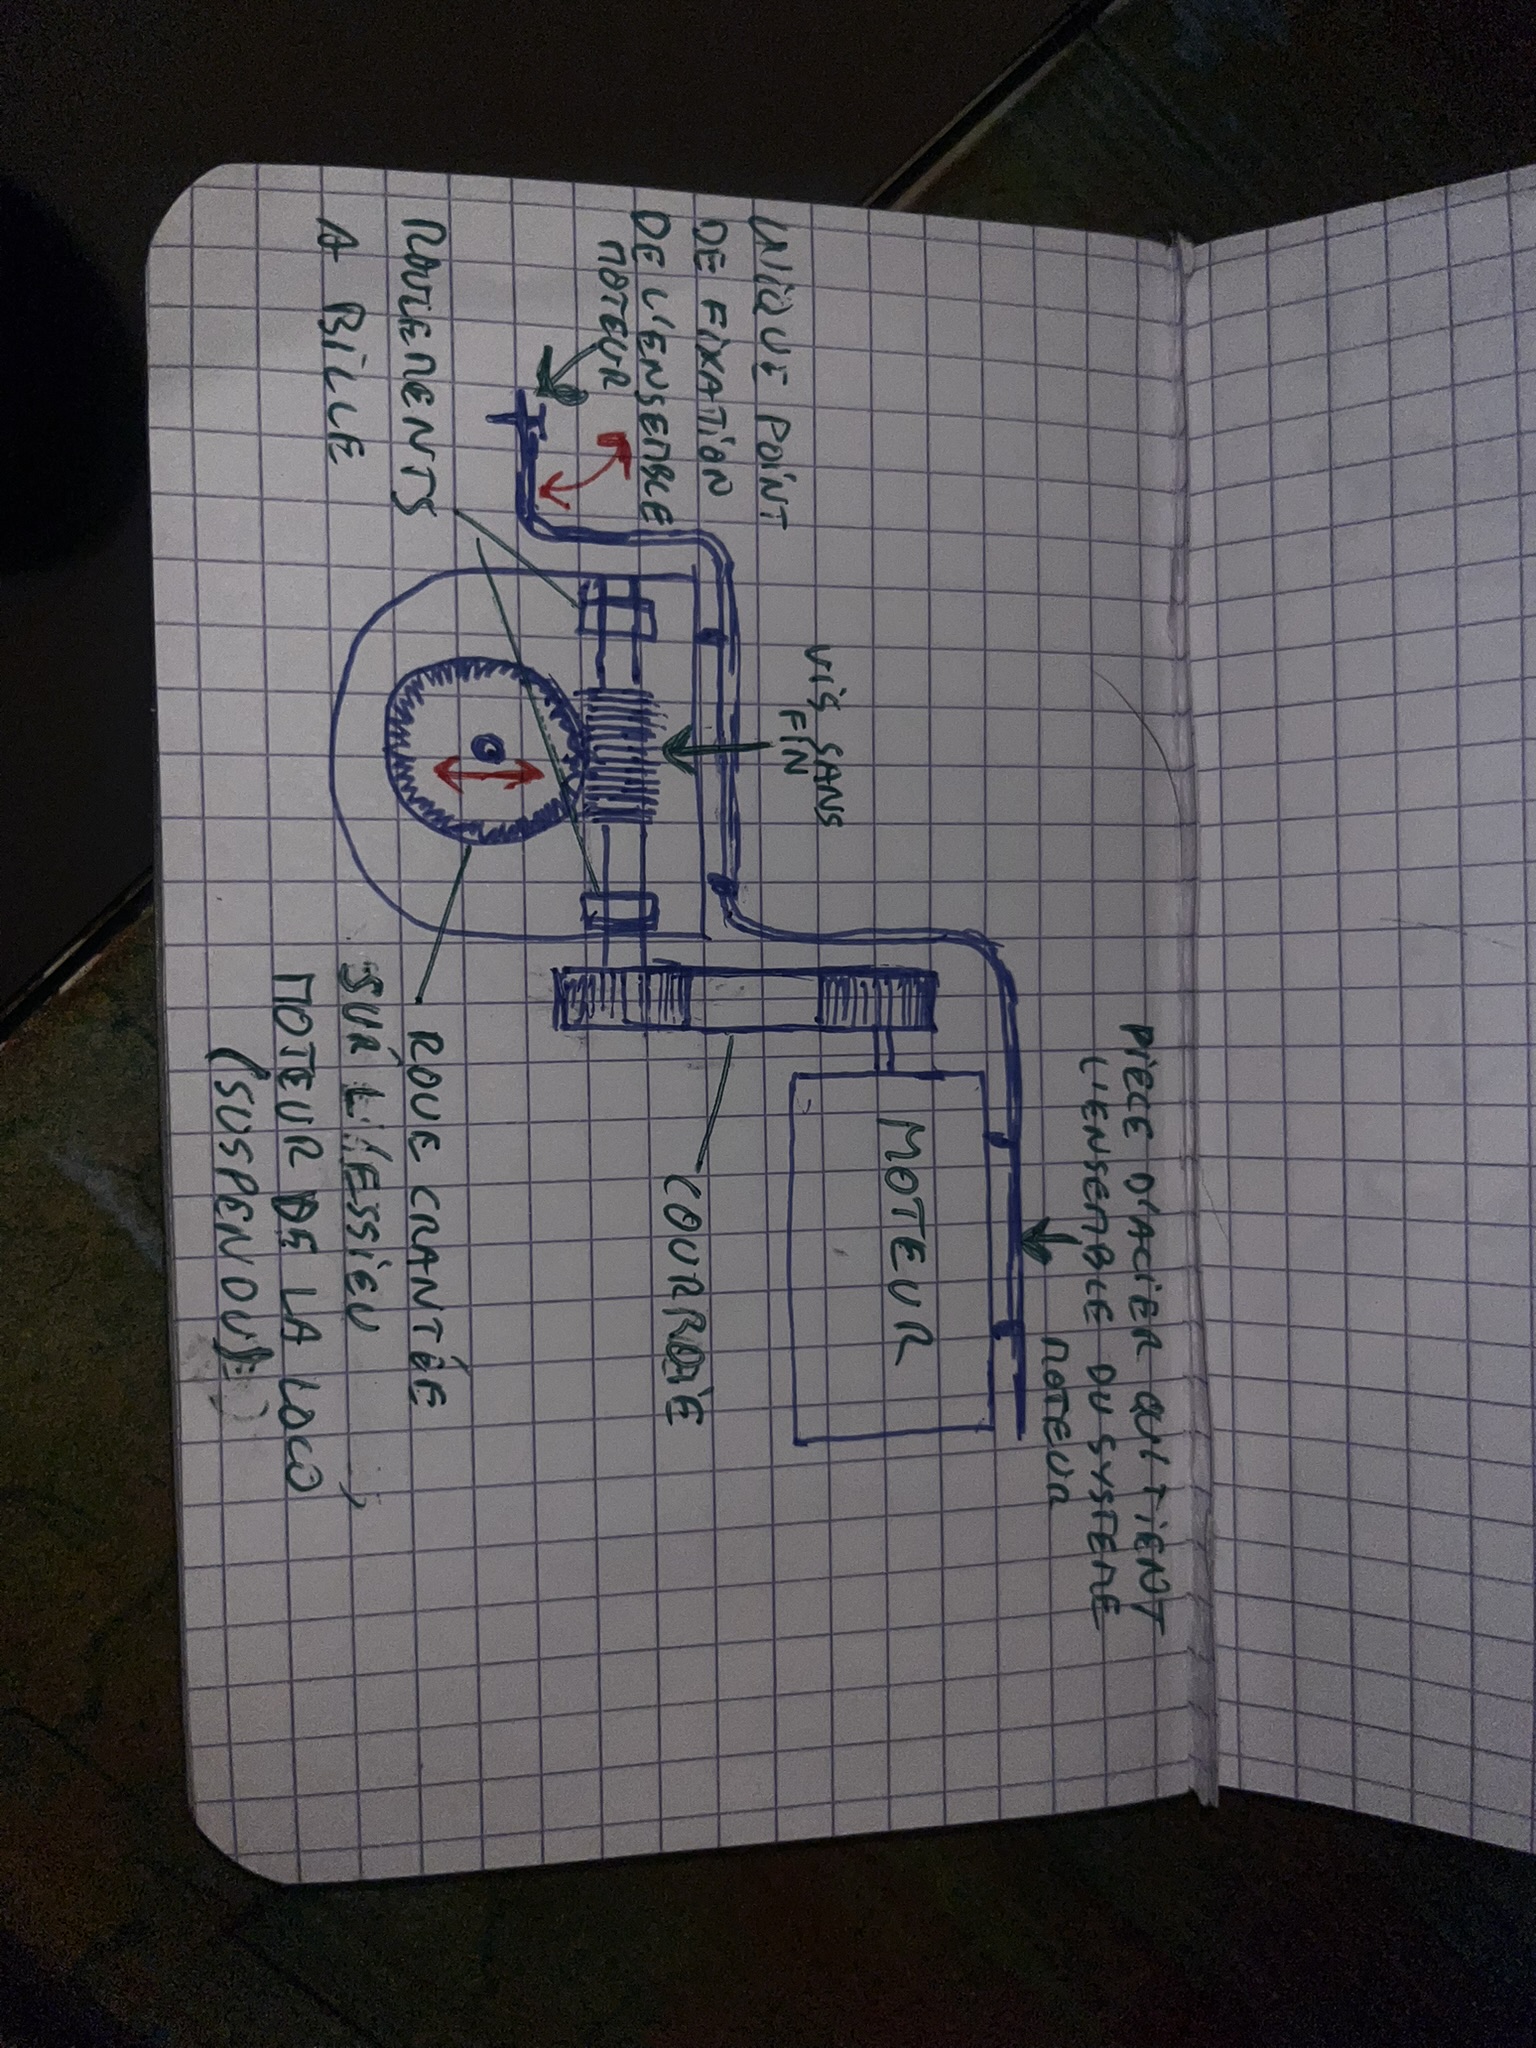 PIÈCE D'ACIER QUI TIENT
L'ENSEMBLE DU SYSTEME
MOTEUR
UNIQUE POINT
DE FIXATION
DE L'ENSEMBLE
MOTEUR
VIS SANS
FIN
MOTEUR
COURROIE
ROULEMENTS
A BILLE
ROUE CRANTÉE
SUR L'ESSIEU
MOTEUR DE LA LOCO
(SUSPENDU)